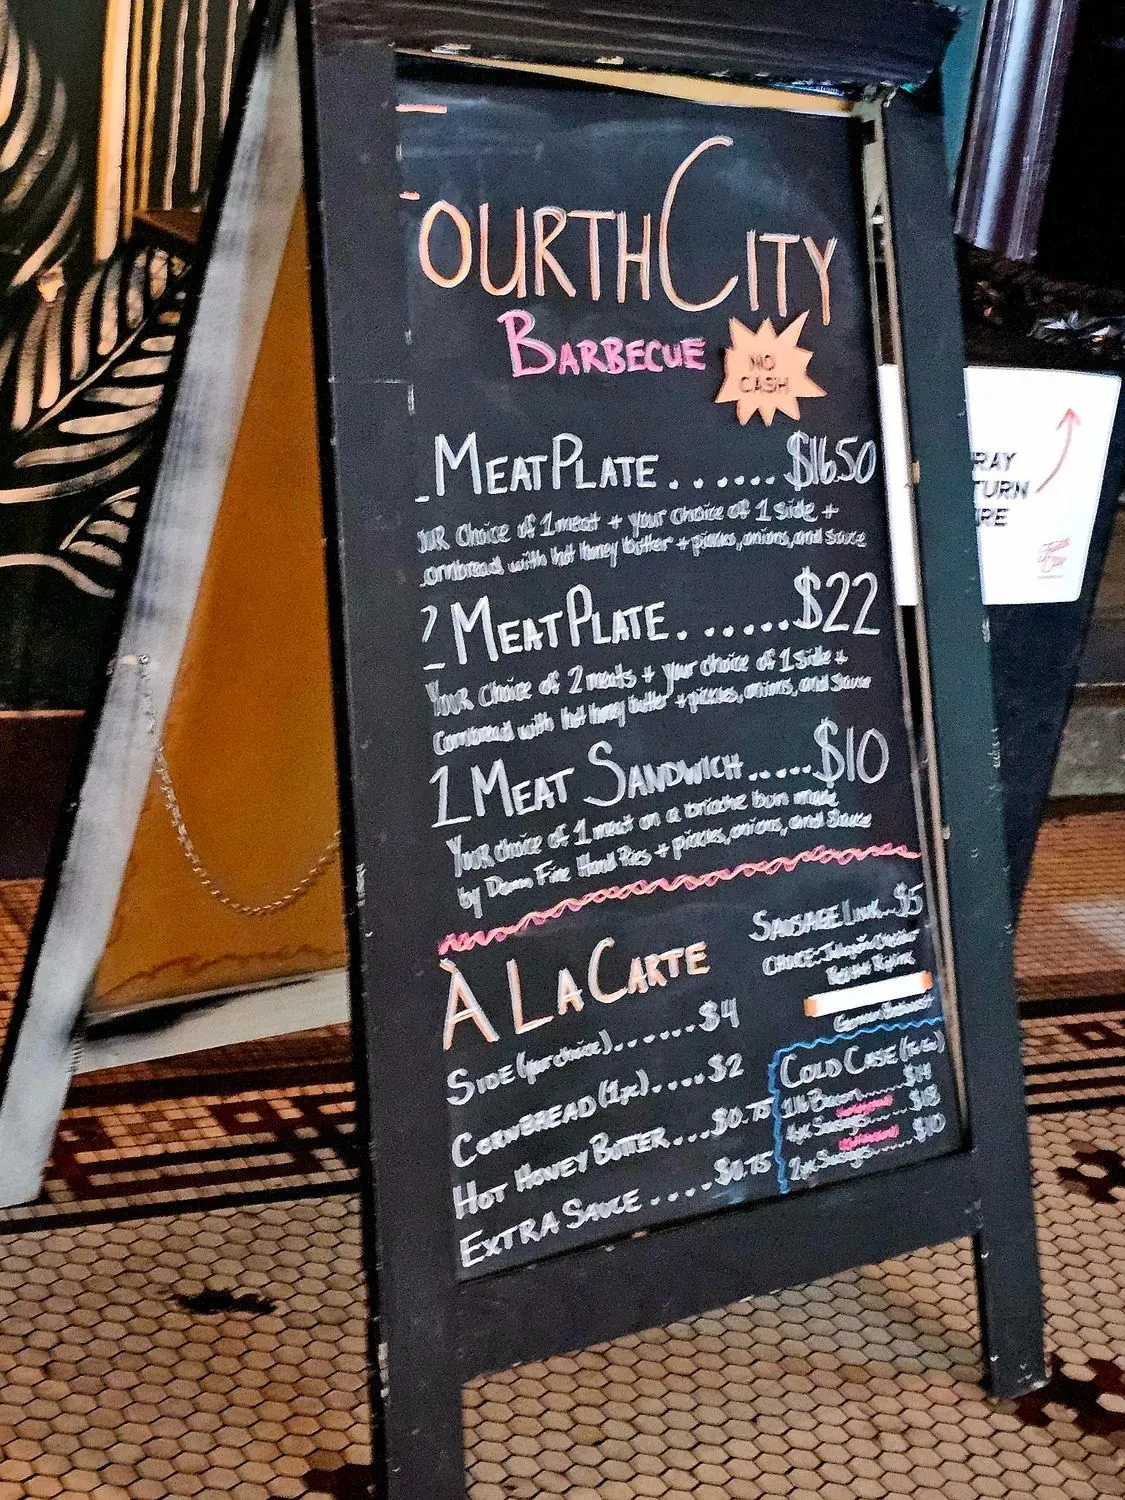 OURTH CITY
BARBECUE
NO
CASH
MEAT PLATE......$16.50
UR choice of 1 meat + your choice of 1 side +
ornbread with hot honey butter + pickles, onions, and sauce
2 MEAT PLATE.......$22
Your choice of 2 meats + your choice of 1 side +
Cornbread with hot honey butter + pickles, onions, and sauce
1 MEAT SANDWICH.....$10
Your choice of 1 meat on a brioche bun made
by Damn Fine Hand Pies + pickles, onions, and sauce
SAUSAGE LINK...$5
CHOICE: Jalapeño Cheddar
À LA CARTE
SIDE (your choice)......$4
CORNBREAD (1pc)....$2
HOT HONEY BUTTER...$0.75
EXTRA SAUCE....$0.75
COLD CASE
1lb Bacon....$14
4pc Sausage....$18
2pc Sausage....$10
RAY
TURN
RE